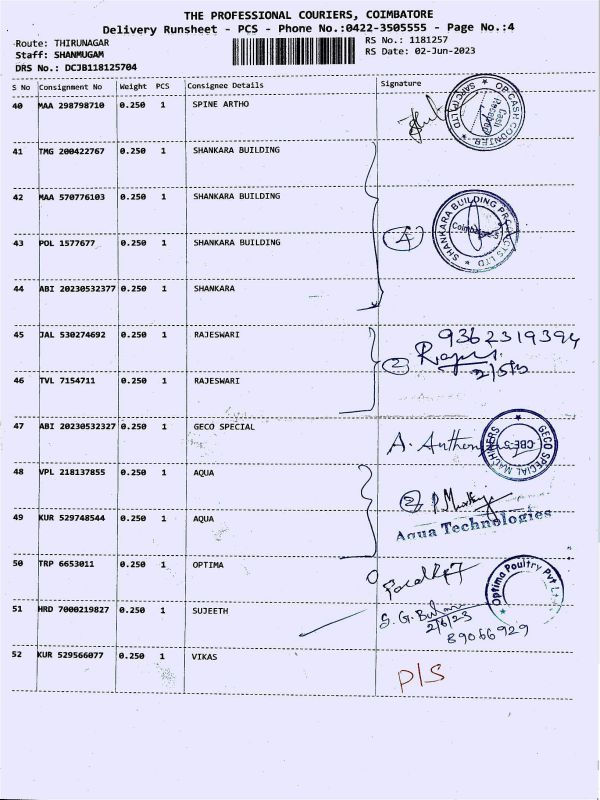 THE PROFESSIONAL COURIERS, COIMBATORE
Delivery Runsheet - PCS - Phone No.:0422-3505555 - Page No.:4
Route: THIRUNAGAR RS No.: 1181257
Staff: SHANMUGAM RS Date: 02-Jun-2023
DRS No.: DCJB118125704
S No Consignment No Weight PCS Consignee Details Signature
40 MAA 298798710 0.250 1 SPINE ARTHO
OP CASH COUNTER
Cash Received
41 TMG 200422767 0.250 1 SHANKARA BUILDING
42 MAA 570776103 0.250 1 SHANKARA BUILDING
SHANKARA BUILDING PRODUCTS LTD
Coimbatore
4
43 POL 1577677 0.250 1 SHANKARA BUILDING
44 ABI 20230532377 0.250 1 SHANKARA
45 JAL 530274692 0.250 1 RAJESWARI
9362319394
2
46 TVL 7154711 0.250 1 RAJESWARI
47 ABI 20230532327 0.250 1 GECO SPECIAL
A. Anthony
GECO SPECIAL MACHINERS
CBE-5
48 VPL 218137855 0.250 1 AQUA
2
49 KUR 529748544 0.250 1 AQUA
Aqua Technologies
50 TRP 6653011 0.250 1 OPTIMA
Optima Poultry Pvt Ltd
51 HRD 7000219827 0.250 1 SUJEETH
2/6/23
89066929
52 KUR 529566077 0.250 1 VIKAS
P/S